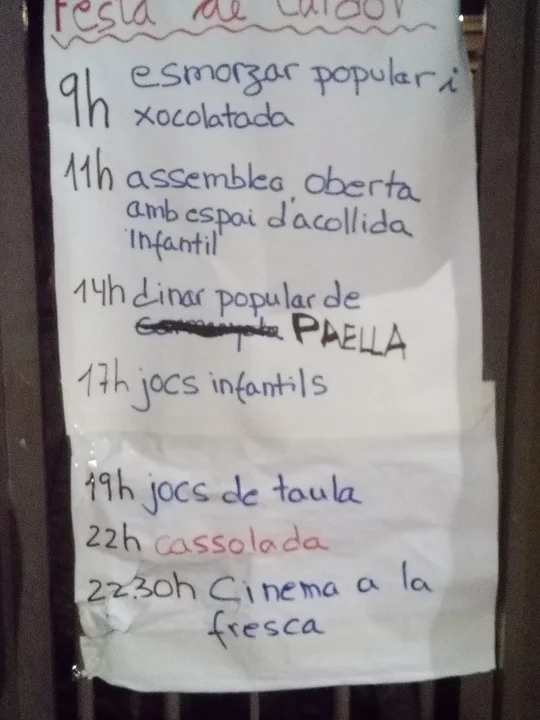 Festa de Tardor
9h esmorzar popular i
xocolatada
11h assemblea oberta
amb espai d'acollida
infantil
14h dinar popular de
PAELLA
17h jocs infantils
19h jocs de taula
22h cassolada
22:30h Cinema a la
fresca